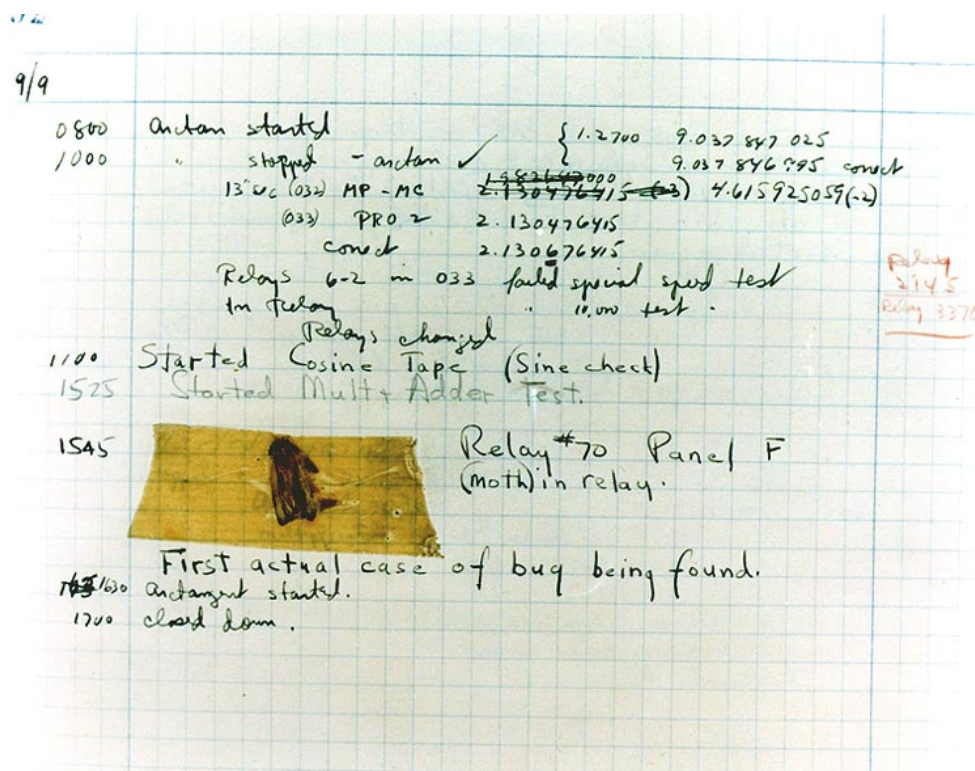 9/9
0800 arctan started { 1.2700 9.037 847 025
1000 " stopped - arctan ✓ 9.037 846 995 conect
13" sec (032) MP - MC 1.982647000 2.130476415 (-3) 4.615925059(-2)
(033) PRO 2 2.130476415
conect 2.130676415
Relays 6-2 in 033 failed special speed test
In Relay " 10,000 test .
Relay
2145
Relay 3370
Relays changed
1100 Started Cosine Tape (Sine check)
1525 Started Mult+ Adder Test.
1545 Relay #70 Panel F
(moth) in relay.
First actual case of bug being found.
1630 arctangent started.
1700 closed down.